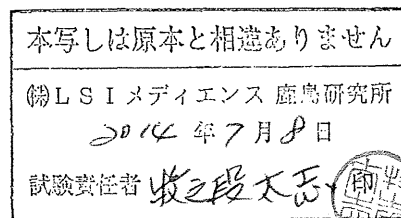 本写しは原本と相違ありません
㈱LSIメディエンス 鹿島研究所
2014 年 7 月 8 日
試験責任者 牧之段太志 印